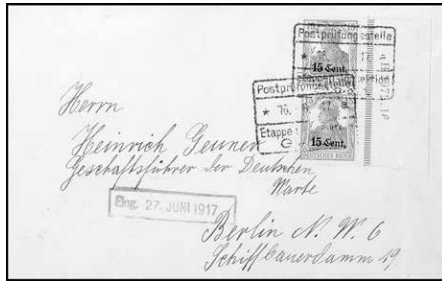 Postprüfungsstelle
15 Cent.
Postprüfungsstelle
Etappe
15 Cent.
DEUTSCHES REICH
Herrn
Heinrich
Geschäftsführer der Deutschen
Warte
Eing. 27. JUNI 1917
Berlin N. W. 6
Schiffbauerdamm 19